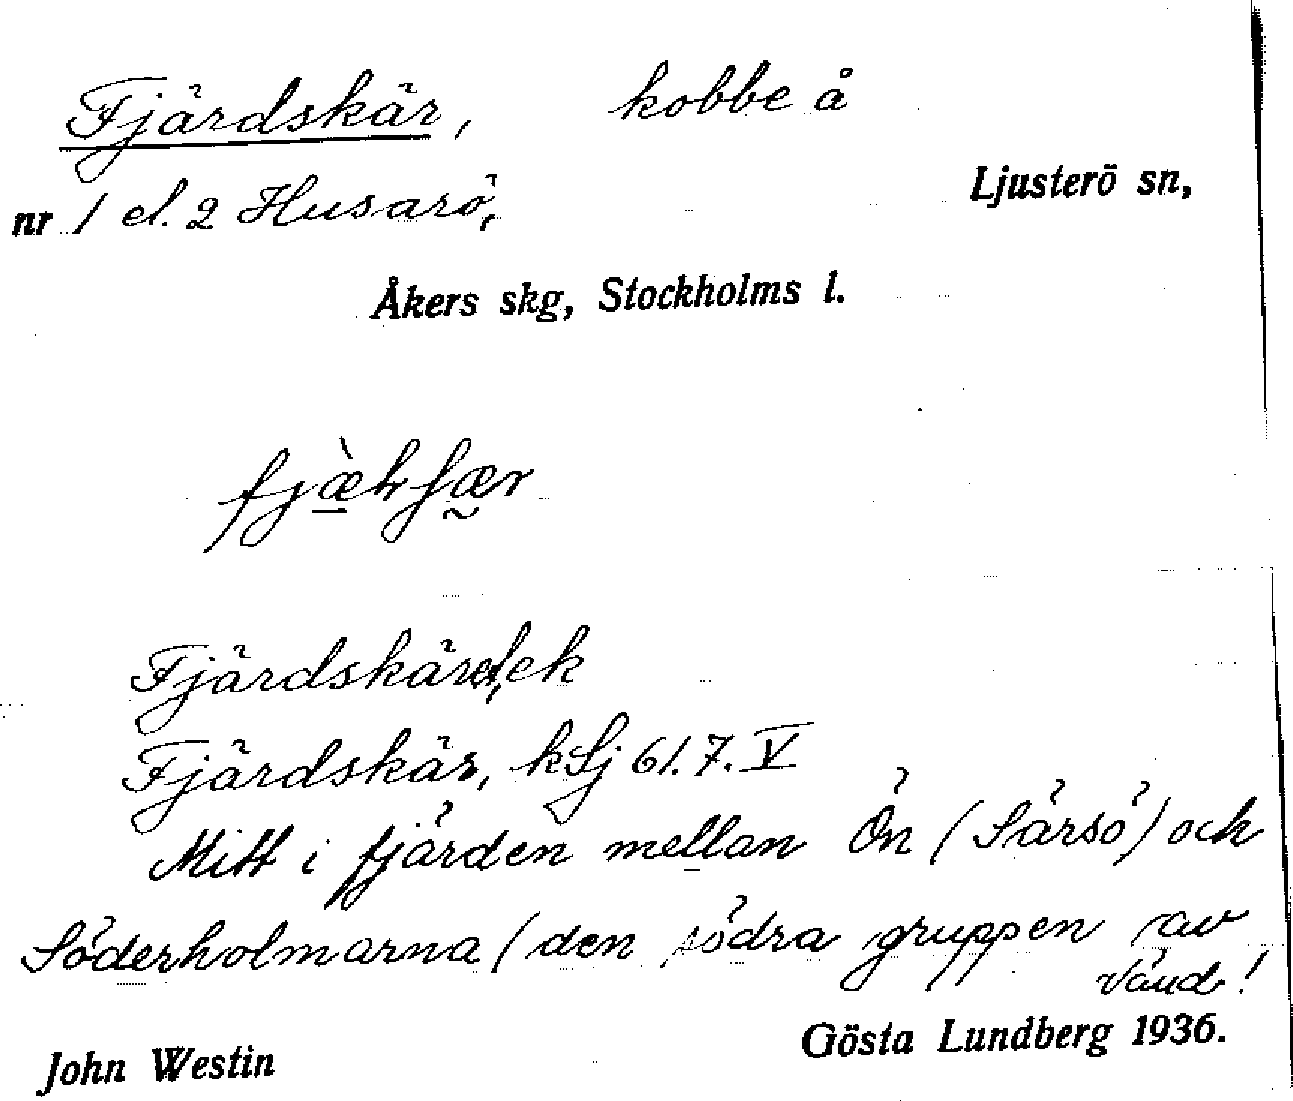 Fjärdskär, kobbe å
nr 1 el. 2 Husarö, Ljusterö sn,
Åkers skg, Stockholms l.
Fjärdskär, ek
Fjärdskär, k Lj 61.7.V
Mitt i fjärden mellan Ön (Särsö) och
Söderholmarna (den södra gruppen av
Vänd!
John Westin Gösta Lundberg 1936.